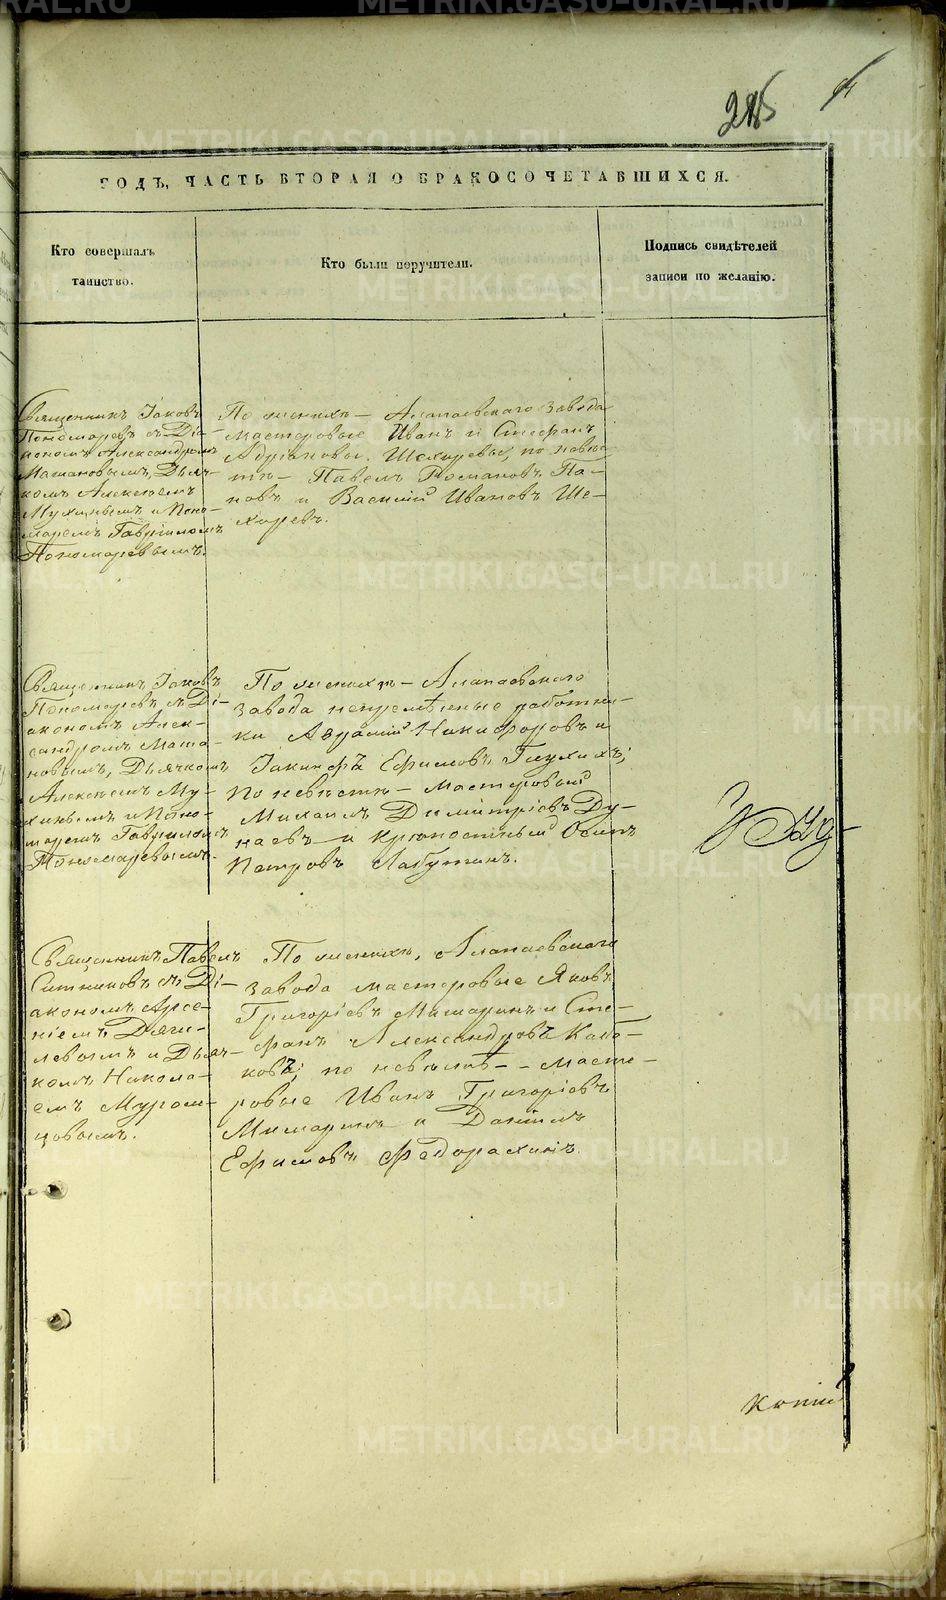 215
ГОДЪ, ЧАСТЬ ВТОРАЯ О БРАКОСОЧЕТАВШИХСЯ.
Кто совершалъ
таинство.
Кто были поручители.
Подпись свидѣтелей
записи по желанію.
Священникъ Іаковъ
Пономаревъ съ Діа-
кономъ Александромъ
Матановымъ, Дьяч-
комъ Алексѣемъ
Мухинымъ и Поно-
маремъ Гавріиломъ
Пономаревымъ.
По женихѣ – Алапаевскаго завода
мастеровые Иванъ и Стефанъ
Адріановы Шехиревы, по невѣс-
тѣ – Павелъ Романовъ Па-
новъ и Василій Ивановъ Ше-
хиревъ.
Священникъ Іаковъ
Пономаревъ, съ Ді-
акономъ Алек-
сандромъ Мата-
новымъ, Дьячкомъ
Алексѣемъ Му-
хинымъ и Поно-
маремъ Гавріиломъ
Пономаревымъ.
По женихѣ – Алапаевскаго
завода непремѣнные работни-
ки Авраамій Никифоровъ и
Іакинфъ Ефимовъ Глухихъ;
по невѣстѣ – мастеровый
Михаилъ Димитріевъ Ду-
наевъ и крѣпостный Осипъ
Петровъ Лабутинъ.
Священникъ Павелъ
Ситниковъ съ Ді-
акономъ Арсе-
ніемъ Дяги-
левымъ и Дьяч-
комъ Никола-
емъ Муром-
цовымъ.
По женихѣ, Алапаевскаго
завода мастеровые Яковъ
Григоріевъ Мишаринъ и Сте-
фанъ Александровъ Каба-
ковъ; по невѣстѣ – масте-
ровые Иванъ Григоріевъ
Мишаринъ и Даніилъ
Ефимовъ Федорахинъ.
METRIKI.GASO-URAL.RU